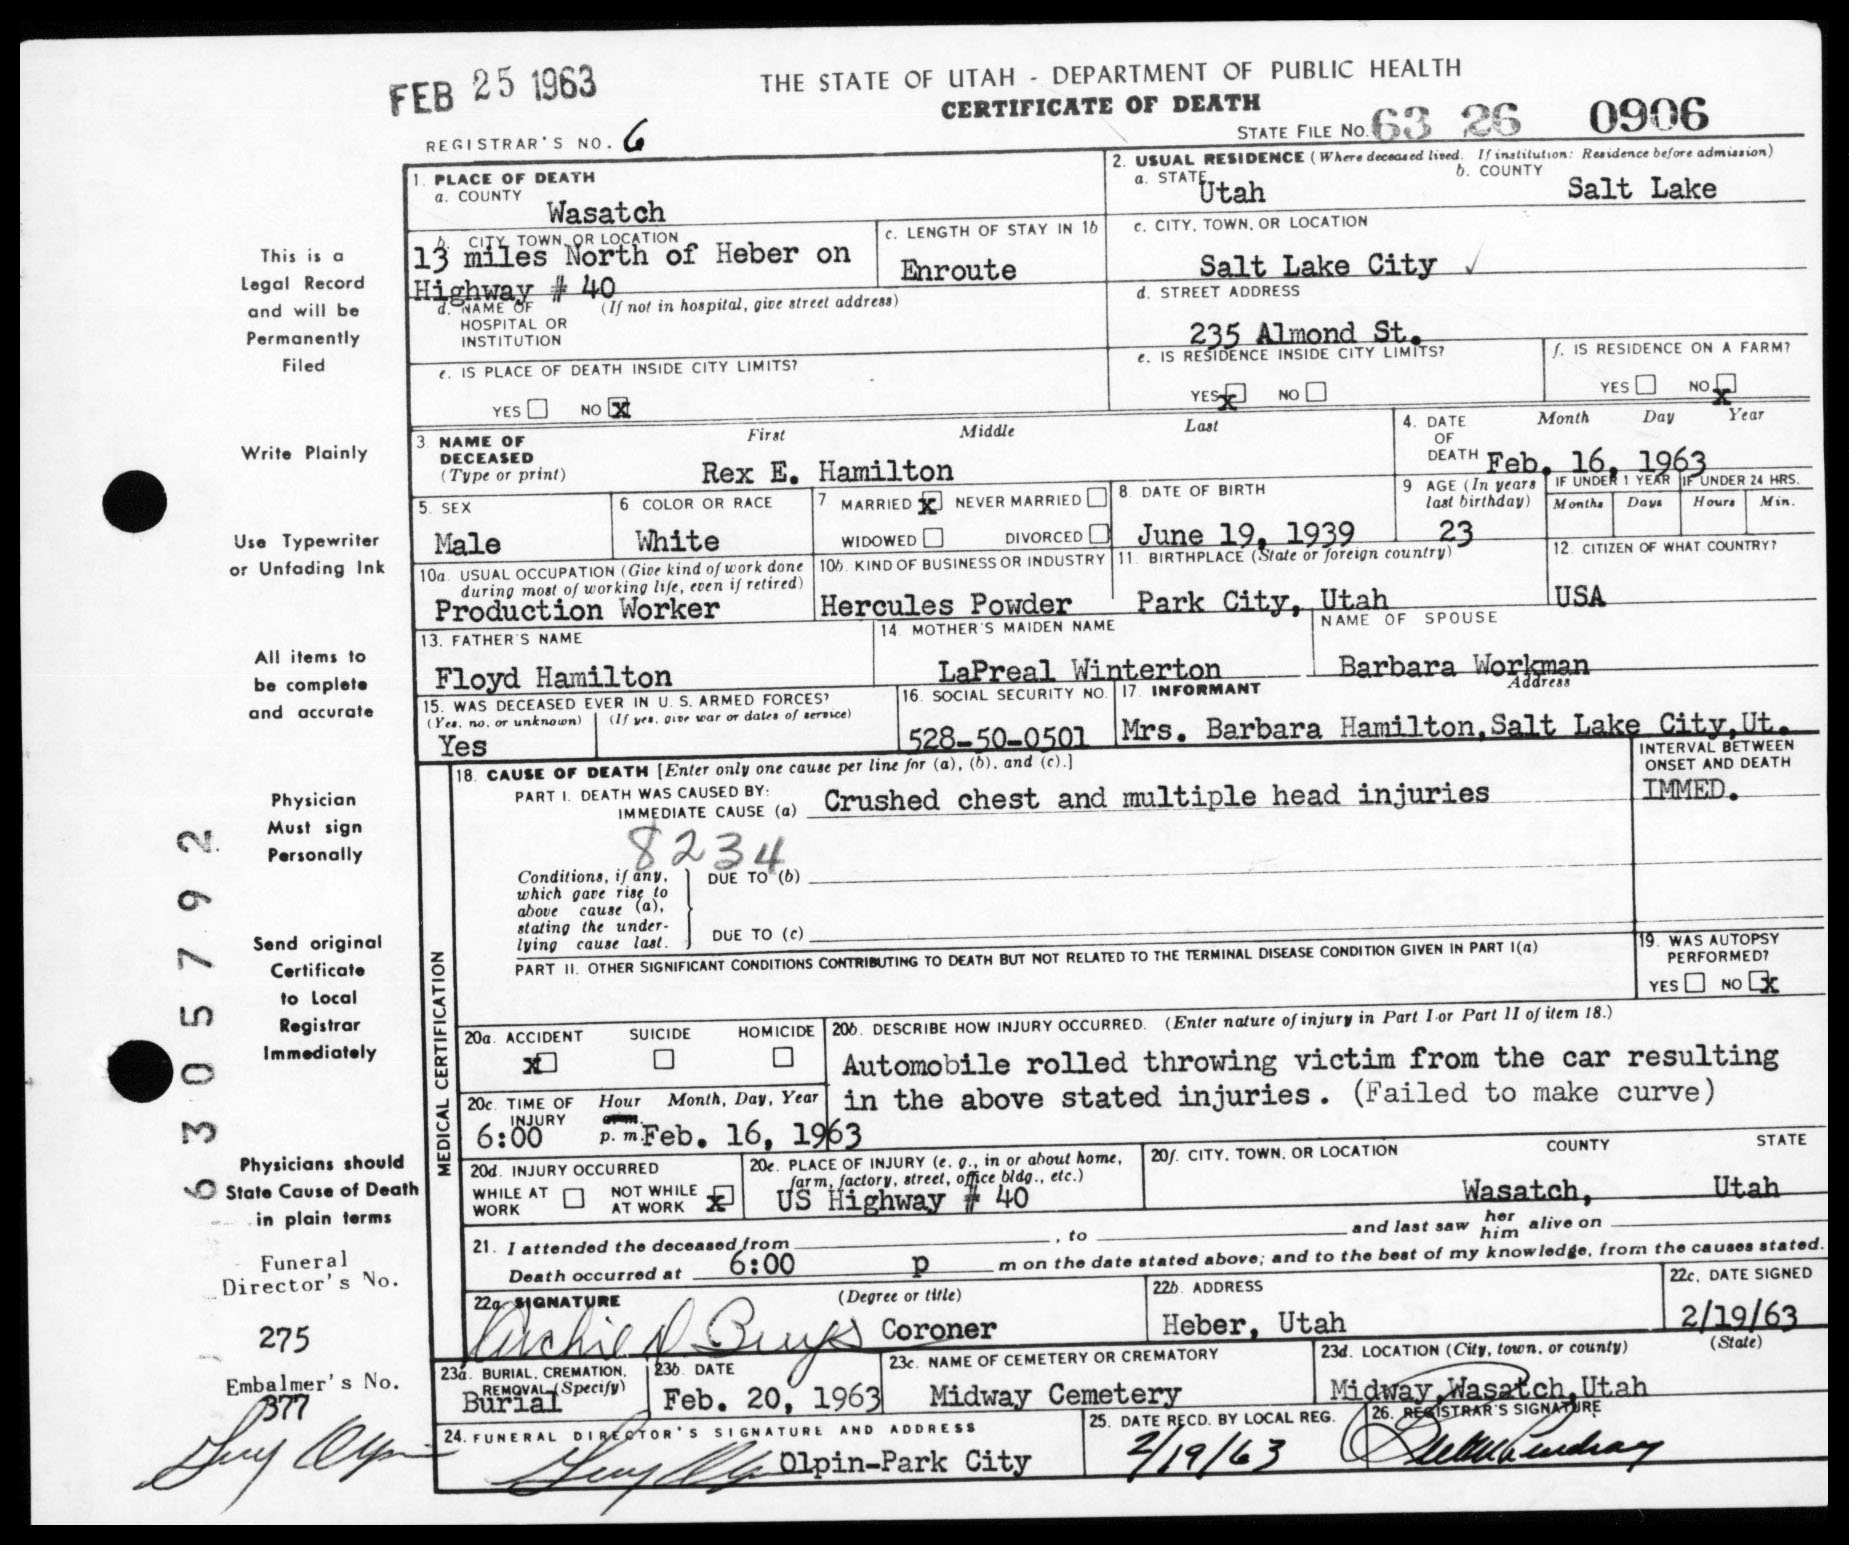 FEB 25 1963
THE STATE OF UTAH - DEPARTMENT OF PUBLIC HEALTH
CERTIFICATE OF DEATH
REGISTRAR'S NO. 6
STATE FILE NO. 63 26 0906
1. PLACE OF DEATH
a. COUNTY
Wasatch
2. USUAL RESIDENCE (Where deceased lived. If institution: Residence before admission)
a. STATE
Utah
b. COUNTY
Salt Lake
b. CITY, TOWN, OR LOCATION
13 miles North of Heber on
Highway # 40
c. LENGTH OF STAY IN 1b
Enroute
c. CITY, TOWN, OR LOCATION
Salt Lake City ✓
d. NAME OF (If not in hospital, give street address)
HOSPITAL OR
INSTITUTION
d. STREET ADDRESS
235 Almond St.
e. IS PLACE OF DEATH INSIDE CITY LIMITS?
YES NO X
e. IS RESIDENCE INSIDE CITY LIMITS?
YES X NO
f. IS RESIDENCE ON A FARM?
YES NO X
3. NAME OF
DECEASED
(Type or print)
First Middle Last
Rex E. Hamilton
4. DATE
OF
DEATH
Month Day Year
Feb. 16, 1963
5. SEX
Male
6 COLOR OR RACE
White
7 MARRIED X NEVER MARRIED
WIDOWED DIVORCED
8. DATE OF BIRTH
June 19, 1939
9 AGE (In years
last birthday)
23
IF UNDER 1 YEAR
Months Days
IF UNDER 24 HRS.
Hours Min.
10a. USUAL OCCUPATION (Give kind of work done
during most of working life, even if retired)
Production Worker
10b. KIND OF BUSINESS OR INDUSTRY
Hercules Powder
11. BIRTHPLACE (State or foreign country)
Park City, Utah
12. CITIZEN OF WHAT COUNTRY?
USA
13. FATHER'S NAME
Floyd Hamilton
14. MOTHER'S MAIDEN NAME
LaPreal Winterton
NAME OF SPOUSE
Barbara Workman
15. WAS DECEASED EVER IN U. S. ARMED FORCES?
(Yes, no, or unknown) (If yes, give war or dates of service)
Yes
16. SOCIAL SECURITY NO.
528-50-0501
17. INFORMANT Address
Mrs. Barbara Hamilton, Salt Lake City, Ut.
MEDICAL CERTIFICATION
18. CAUSE OF DEATH [Enter only one cause per line for (a), (b), and (c).]
PART I. DEATH WAS CAUSED BY:
IMMEDIATE CAUSE (a) Crushed chest and multiple head injuries
INTERVAL BETWEEN
ONSET AND DEATH
IMMED.
8234
Conditions, if any,
which gave rise to
above cause (a),
stating the under-
lying cause last.
DUE TO (b)
DUE TO (c)
PART II. OTHER SIGNIFICANT CONDITIONS CONTRIBUTING TO DEATH BUT NOT RELATED TO THE TERMINAL DISEASE CONDITION GIVEN IN PART I(a)
19. WAS AUTOPSY
PERFORMED?
YES NO X
20a. ACCIDENT SUICIDE HOMICIDE
X
20b. DESCRIBE HOW INJURY OCCURRED. (Enter nature of injury in Part I or Part II of item 18.)
Automobile rolled throwing victim from the car resulting
in the above stated injuries. (Failed to make curve)
20c. TIME OF
INJURY
Hour Month, Day, Year
a.m.
6:00 p. m. Feb. 16, 1963
20d. INJURY OCCURRED
WHILE AT
WORK
NOT WHILE
AT WORK X
20e. PLACE OF INJURY (e. g., in or about home,
farm, factory, street, office bldg., etc.)
US Highway # 40
20f. CITY, TOWN, OR LOCATION COUNTY STATE
Wasatch, Utah
21. I attended the deceased from , to and last saw her him alive on
Death occurred at 6:00 p m on the date stated above; and to the best of my knowledge, from the causes stated.
22a. SIGNATURE (Degree or title)
Archie D Buys Coroner
22b. ADDRESS
Heber, Utah
22c. DATE SIGNED
2/19/63
23a. BURIAL, CREMATION,
REMOVAL (Specify)
Burial
23b. DATE
Feb. 20, 1963
23c. NAME OF CEMETERY OR CREMATORY
Midway Cemetery
23d. LOCATION (City, town, or county) (State)
Midway, Wasatch, Utah
24. FUNERAL DIRECTOR'S SIGNATURE AND ADDRESS
Olpin-Park City
25. DATE RECD. BY LOCAL REG.
2/19/63
26. REGISTRAR'S SIGNATURE
This is a
Legal Record
and will be
Permanently
Filed
Write Plainly
Use Typewriter
or Unfading Ink
All items to
be complete
and accurate
Physician
Must sign
Personally
Send original
Certificate
to Local
Registrar
Immediately
Physicians should
State Cause of Death
in plain terms
Funeral
Director's No.
275
Embalmer's No.
377
6305792